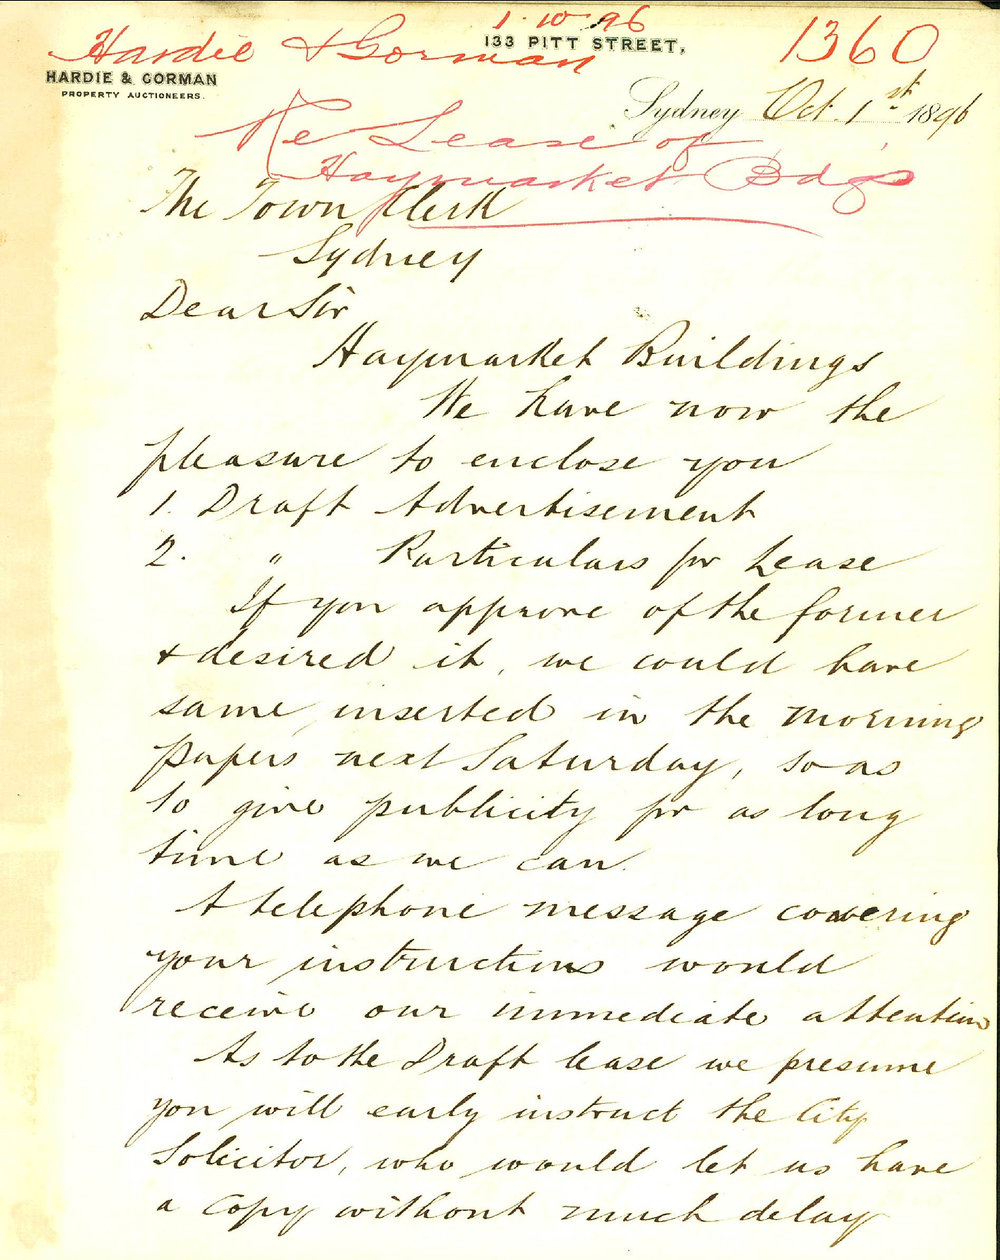 1.10.96
1360
Hardie & Gorman
133 PITT STREET,
HARDIE & GORMAN
PROPERTY AUCTIONEERS.
Sydney Oct. 1st 1896
Re Lease of
Haymarket Bdgs
The Town Clerk
Sydney
Dear Sir
Haymarket Buildings
We have now the
pleasure to enclose you
1. Draft Advertisement
2. " Particulars for Lease
If you approve of the former
& desired it, we could have
same inserted in the morning
papers next Saturday, so as
to give publicity for as long
time as we can.
A telephone message covering
your instructions would
receive our immediate attention
As to the Draft lease we presume
you will early instruct the City
Solicitor, who would let us have
a copy without much delay